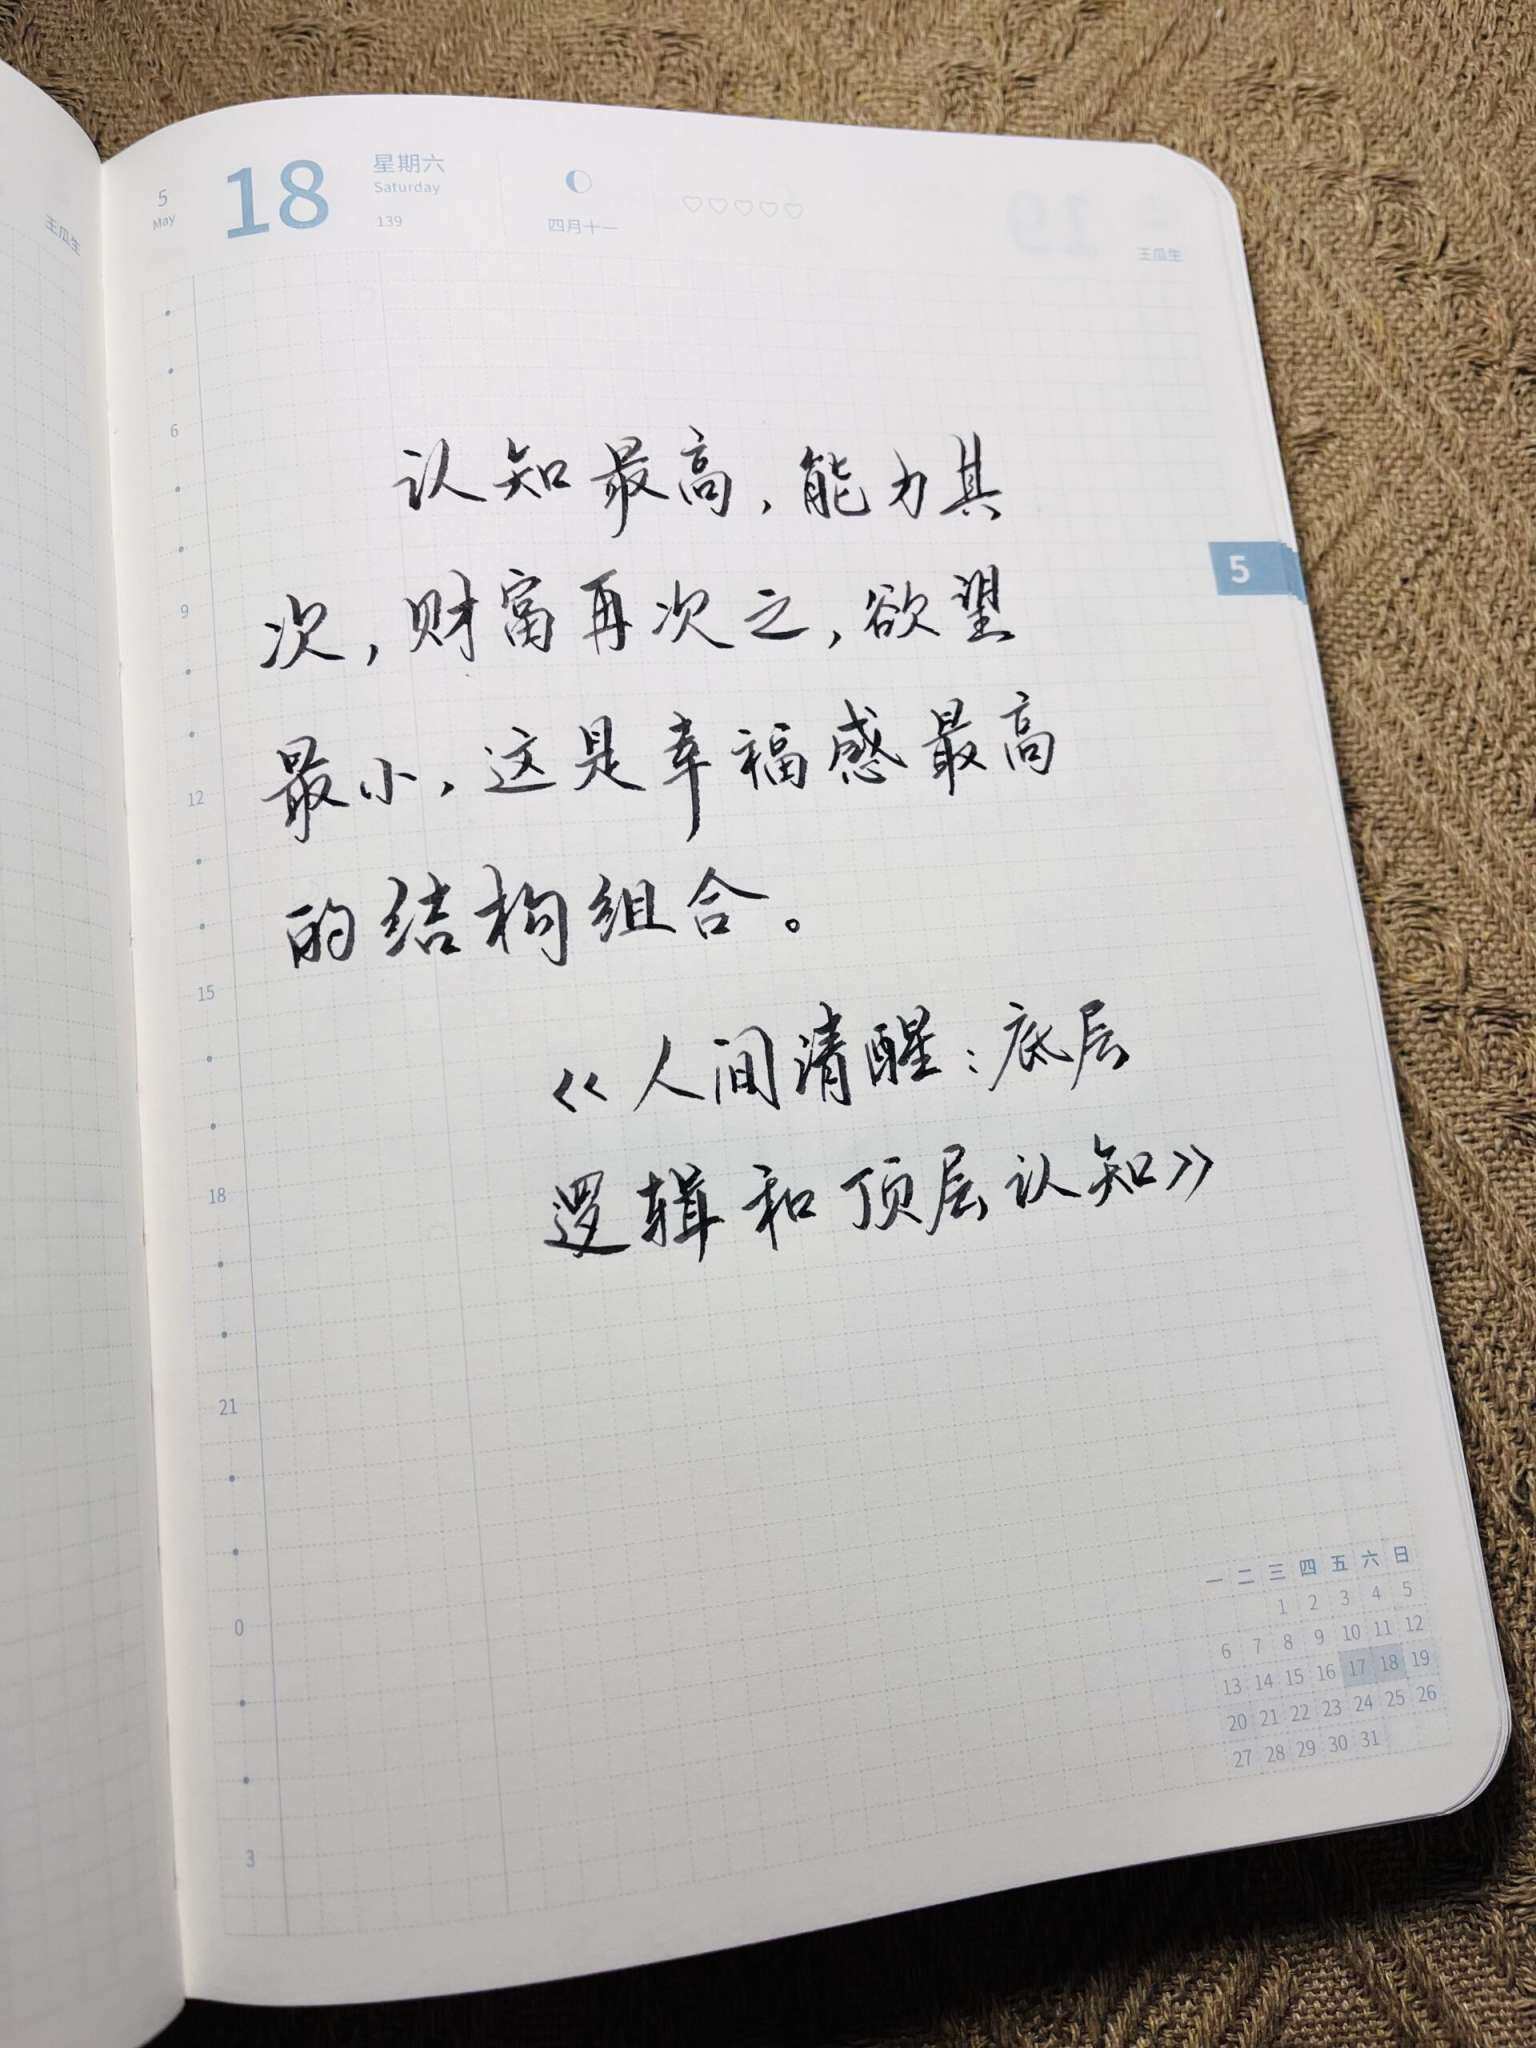 王瓜生
5
May
18
星期六
Saturday
139
四月十一
王瓜生
5
6
9
12
15
18
21
0
3
认知最高，能力其
次，财富再次之，欲望
最小，这是幸福感最高
的结构组合。
《人间清醒：底层
逻辑和顶层认知》
一 二 三 四 五 六 日
1 2 3 4 5
6 7 8 9 10 11 12
13 14 15 16 17 18 19
20 21 22 23 24 25 26
27 28 29 30 31